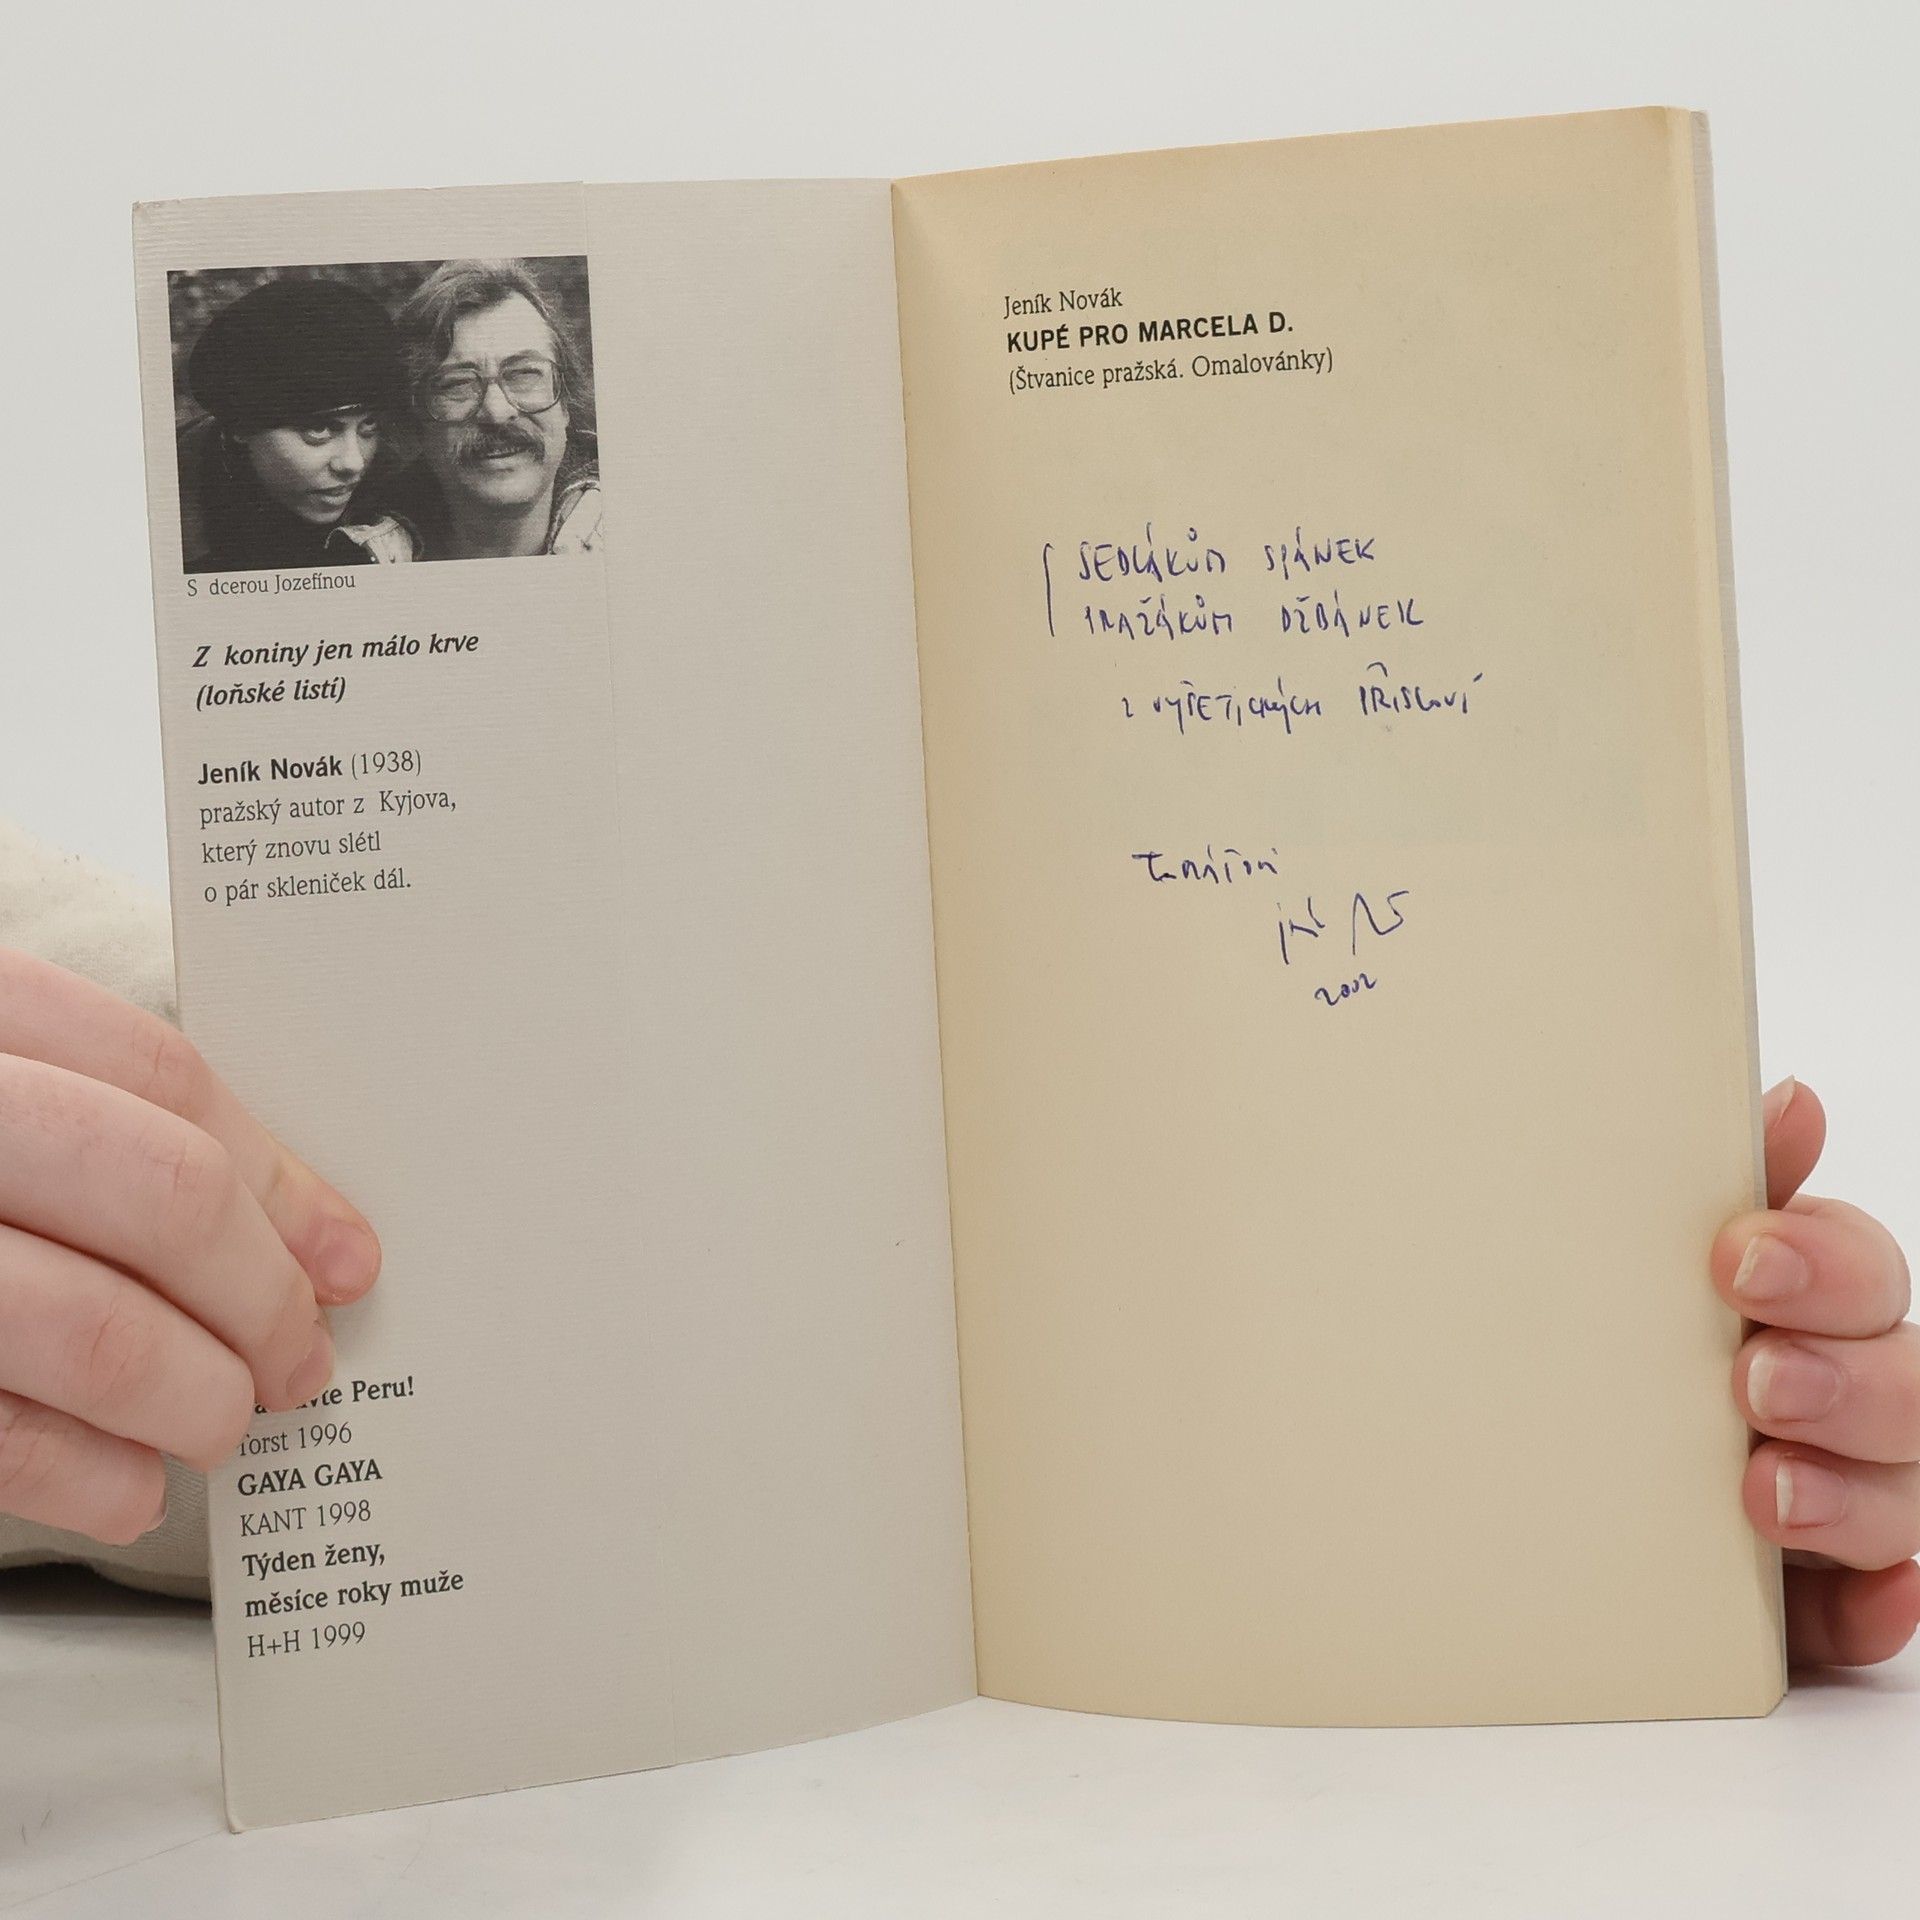 S dcerou Jozefínou
Z koniny jen málo krve
(loňské listí)
Jeník Novák (1938)
pražský autor z Kyjova,
který znovu slétl
o pár skleniček dál.
Peru!
Torst 1996
GAYA GAYA
KANT 1998
Týden ženy,
měsíce roky muže
H+H 1999
Jeník Novák
KUPÉ PRO MARCELA D.
(Štvanice pražská. Omalovánky)
SEDLÁKŮM SPÁNEK
PRAŽÁKŮM DŽBÁNEK
PŘÍSLOVÍ
2002